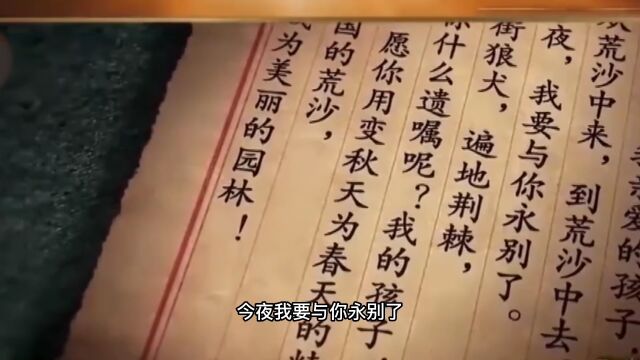 亲爱的孩子，
荒沙中来，到荒沙中去
夜，我要与你永别了。
街狼犬，遍地荆棘，
你什么遗嘱呢？我的孩子，
愿你用变秋天为春天的精
国的荒沙，
为美丽的园林！
今夜我要与你永别了